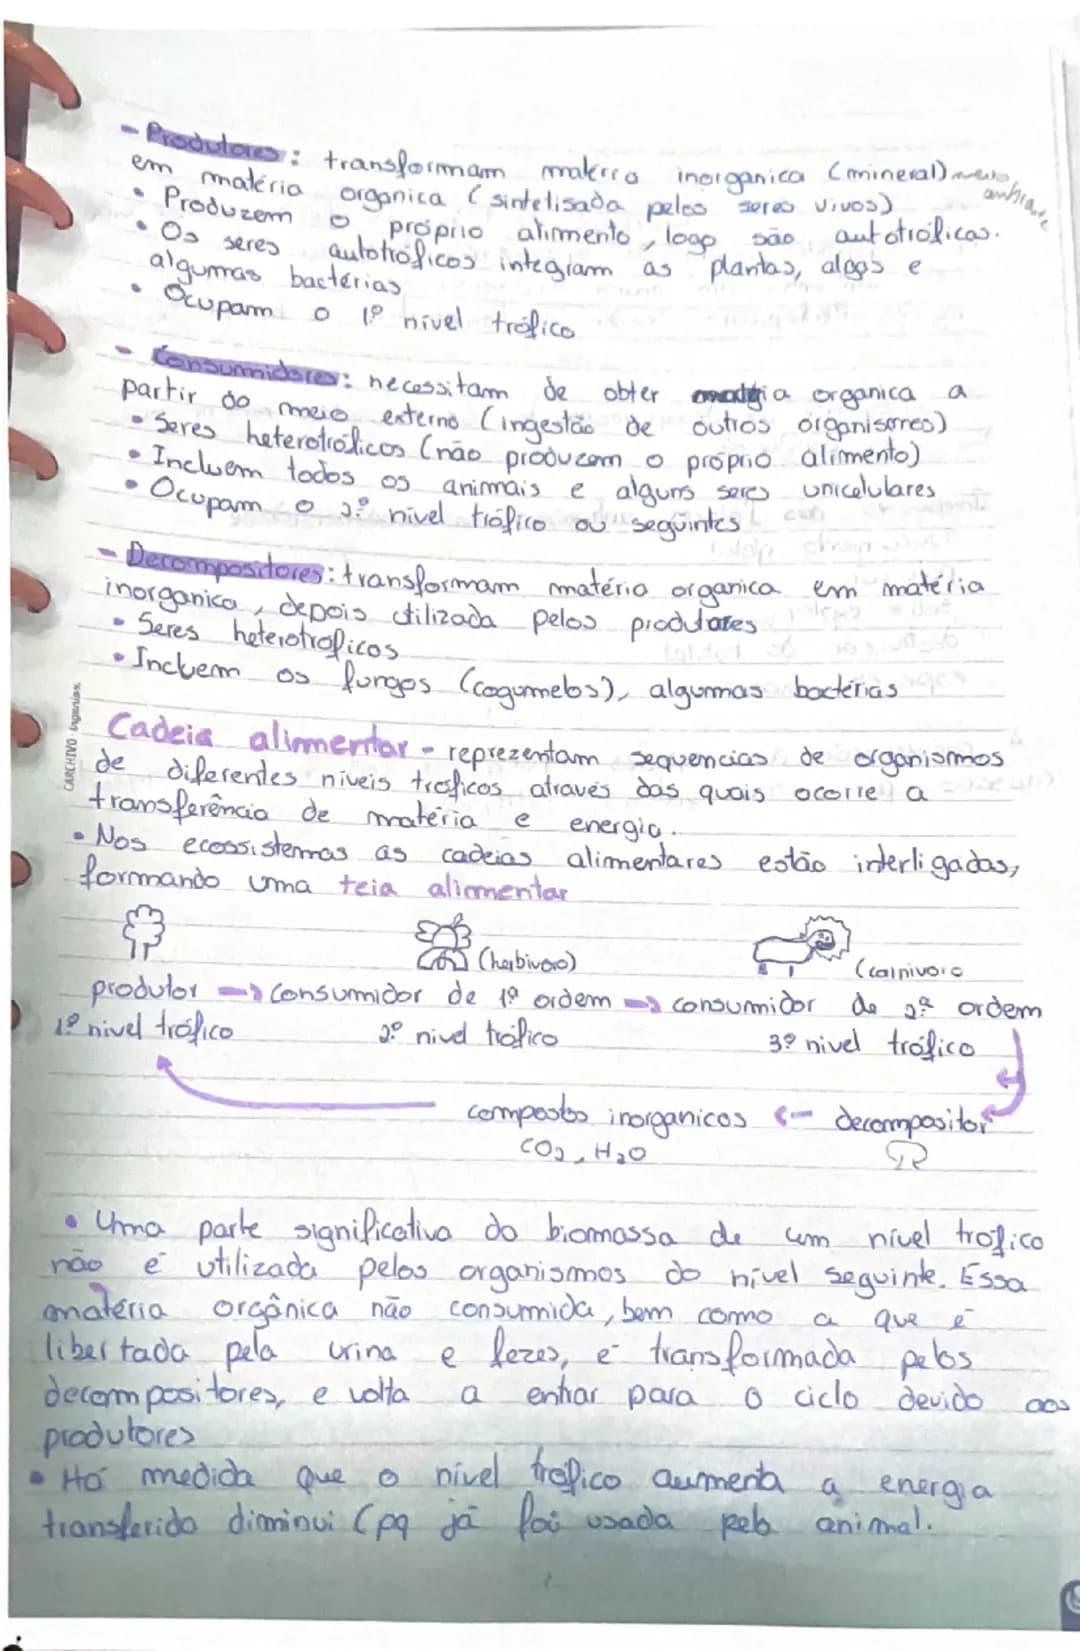 - Produtores: transformam matéria inorganica (mineral) meio ambiante
em matéria organica (sintetisada pelos seres vivos)
• Produzem o próprio alimento, logo são autotróficas.
• Os seres autotróficos integram as plantas, algas e
algumas bactérias
• Ocupam o 1º nível trófico
- Consumidores: necessitam de obter matéria organica a
partir do meio externo (ingestão de outros organismos)
• Seres heterotróficos (não produzem o próprio alimento)
• Incluem todos os animais e alguns seres unicelulares
• Ocupam o 2º nivel trófico ou seguintes
- Decompositores: transformam matéria organica em matéria
inorganica, depois utilizada pelos produtores
• Seres heterotroficos
• Incluem os fungos (cogumelos), algumas bactérias
CARCHIVO
Cadeia alimentar - reprezentam sequencias de organismos
de diferentes niveis troficos através das quais ocorre a
transferência de matéria e energia.
• Nos ecossistemas as cadeias alimentares estão interligadas,
formando uma teia alimentar
(herbivoro) (carnivoro
produtor → consumidor de 1º ordem → consumidor de 2ª ordem
1º nivel trófico 2º nivel trófico 3º nivel trófico
compostos inorganicos ← decompositor
CO2, H2O
• Uma parte significativa da biomassa de um nível trófico
não é utilizada pelos organismos do nível seguinte. Essa
matéria orgânica não consumida, bem como a que é
libertada pela urina e fezes, é transformada pelos
decompositores, e volta a entrar para o ciclo devido aos
produtores
• Há medida que o nível trofico aumenta a energia
transferida diminui (pq já foi usada pelo animal.